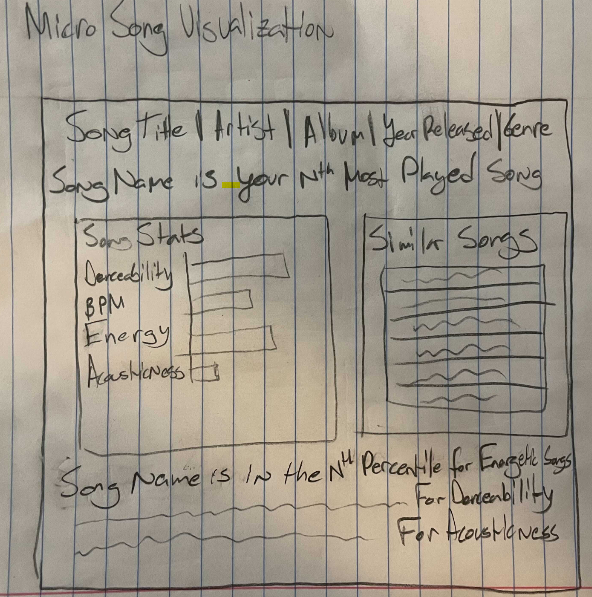 Micro Song Visualization
Song Title | Artist | Album | Year Released | Genre
Song Name is your Nth Most Played Song
Song Stats
Danceability
BPM
Energy
Acousticness
Similar Songs
Song Name is in the Nth Percentile for Energetic Songs
For Danceability
For Acousticness